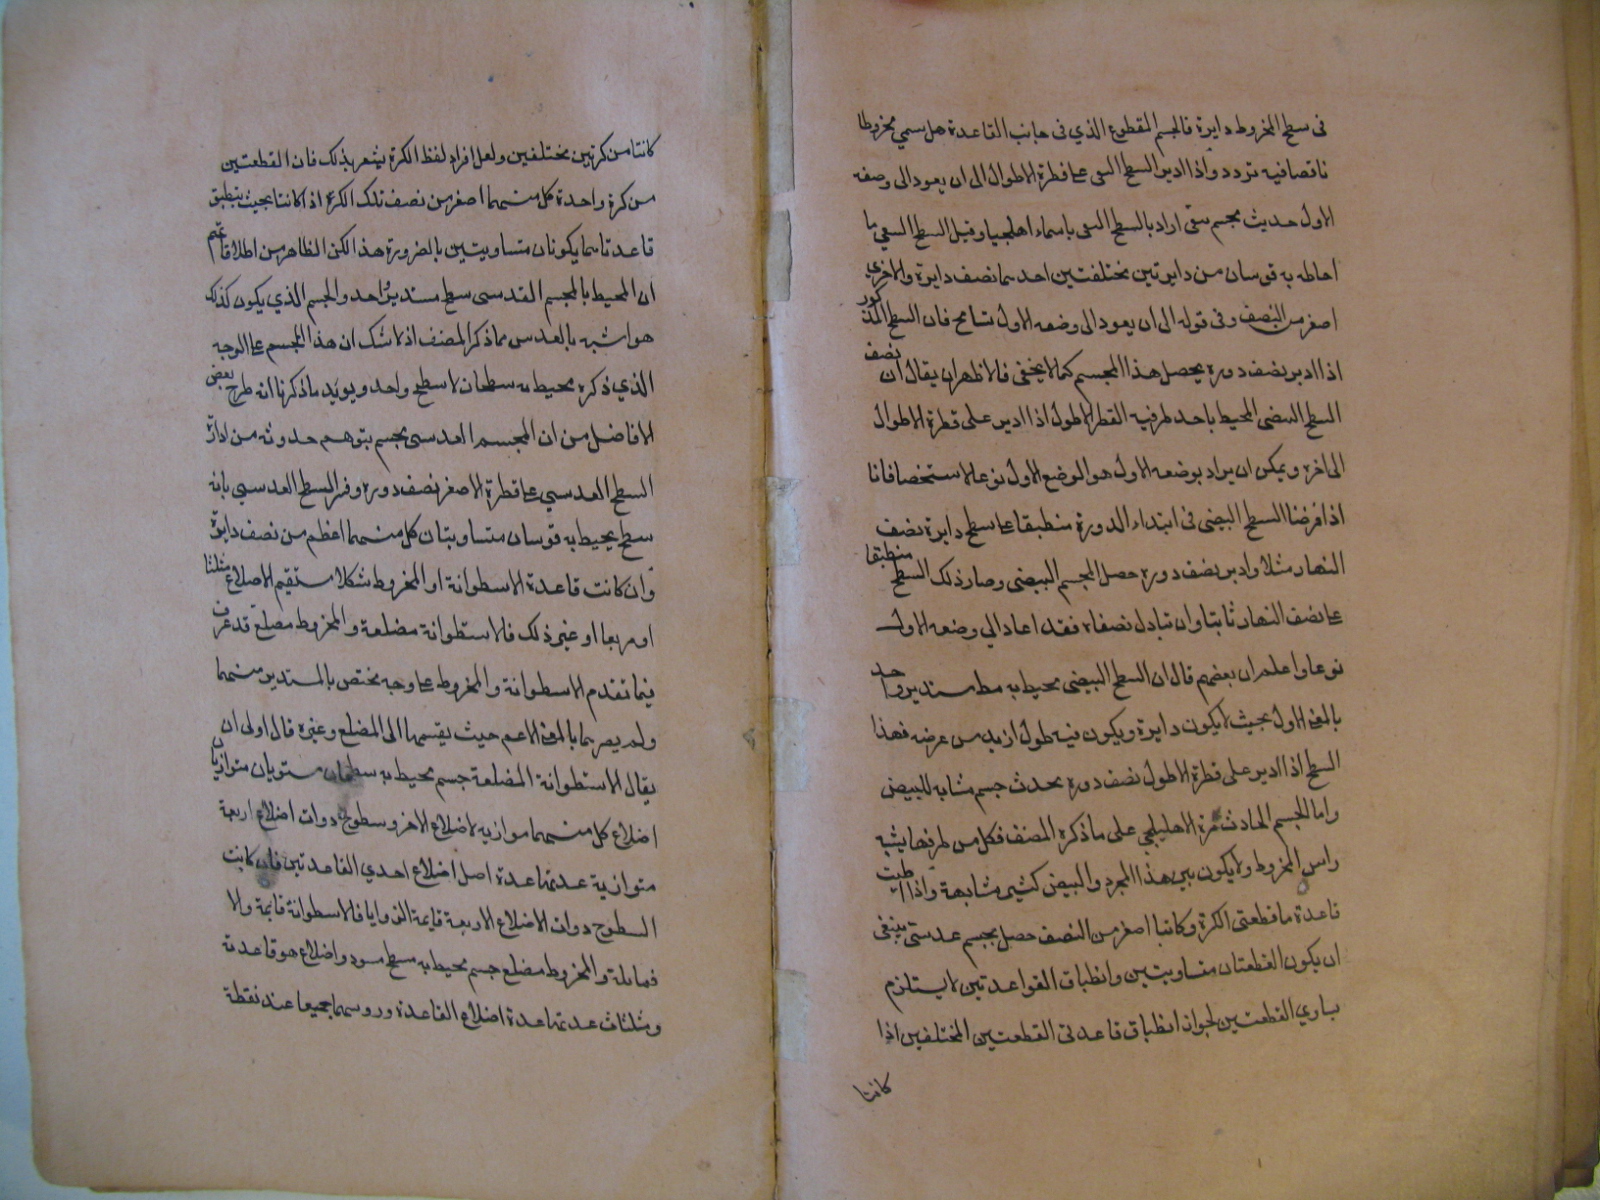 فى سطح المخروط دايرة فالجسم المقطوع الذي فى جانب القاعدة هل سمي مخروطا
ناقصا فيه تردد واذا ادير السطح البيضى على قطرة الاطوال الى ان يعود الى وضعه
الاول حديث مجسم بيضى اراد بالسطح البيضى باسماه اهلجيا وقيل السطح البيضي ما
احاطه به قوسان من دايرتين مختلفتين احدىهما نصف دايرة والاخري
اصغر من النصف وفى قوله الى ان يعود الى وضعه الاول تسامح فان السطح المذكور
اذا ادير نصف دورة يحصل هذا المجسم كما لا يخفى فالاظهر ان يقال ان نصف
السطح البيضى المحيط باحد طرفيه القطر الاطول اذا ادير على قطرة الاطوال
الى اخره ويمكن ان يراد بوضعه الاول هو الوضع الاول نوعا لا شخصا فانا
اذا فرضنا السطح البيضى فى ابتداء الدورة منطبقا على سطح دايرة نصف
النهار مثلا وادير نصف دورة حصل المجسم البيضى وصار ذلك السطح منطبقا
على نصف النهار ثابتا وان تبادل نصفاه فقد اعاد الى وضعه الاول
نوعا واعلم ان بعضهم قال ان السطح البيضى محيط به خط مستدير واحد
بالمعنى الاول بحيث لا يكون دايرة ويكون فيه طول ازيد من عرضه فهذا
السطح اذا ادير على قطرة الاطول نصف دورة يحدث جسم مشابه للبيض
واما الجسم الحادث من الاهليلجي على ما ذكره المصنف فكل من طرفيها يشبه
راس المخروط ولا يكون بين هذا المجرد والبيض كثير مشابهة واذا اطبقت
قاعدة ما قطعتى الكرة وكانتا اصغر من النصف حصل مجسم عدستى ينبغى
ان يكون القطعتان متساويتين وانطباق القواعدتين لا يستلزم
تساوي القطعتين لجواز انطباق قاعدتى القطعتين المختلفين اذا
كانتا
كانتا من كرتين مختلفتين ولعل افراد لفظ الكرة يشعر بذلك فان القطعتين
من كرة واحدة كل منهما اصغر من نصف تلك الكرة اذا كانتا بحيث ينطبق
قاعدتاهما يكونان متساويتين بالضرورة هذا لكن الظاهر من اطلاقاتهم
ان المحيط بالمجسم العدسى سطح مستدير واحد والجسم الذي يكون كذلك
هو اشبه بالعدس مما ذكر المصنف اذ لا شك ان هذا المجسم على الوجه
الذي ذكره محيط به سطحان لا سطح واحد ويويد ما ذكرنا انه طرح بعض
الافاضل من ان المجسم العدسى مجسم يتوهم حدوثه من ادارة
السطح العدسي على قطرة الاصغر نصف دورة وفسر السطح العدسي بانه
سطح يحيط به قوسان متساويتان كل منهما اعظم من نصف دايرة
وان كانت قاعدة الاسطوانة او المخروط شكلا مستقيم الاضلاع مثلثا
او مربعا او غير ذلك فالاسطوانة مضلعة والمخروط مضلع قد عرف
فيما تقدم الاسطوانة والمخروط على وجه يختص بالمستدير منهما
ولم يعرفهما بالمعنى الاعم حيث يقسمها الى المضلع وغيره قال اولى ان
يقال الاسطوانة المضلعة جسم محيط به سطحان مستويان متوازيان
اضلاع كل منهما موازيه لاضلاع الاخر وسطوح ذوات اضلاع اربعة
متوازية عدتها عدة اصل اضلاع احدي القاعدتين فان كانت
السطوح ذوات الاضلاع الاربعة قايمة الزوايا فالاسطوانة قايمة والا
فمائلة والمخروط مضلع جسم محيط به سطح مستو ذو اضلاع هو قاعدته
ومثلثات عدتها عدة اضلاع القاعدة ورؤسها جميعا عند نقطة